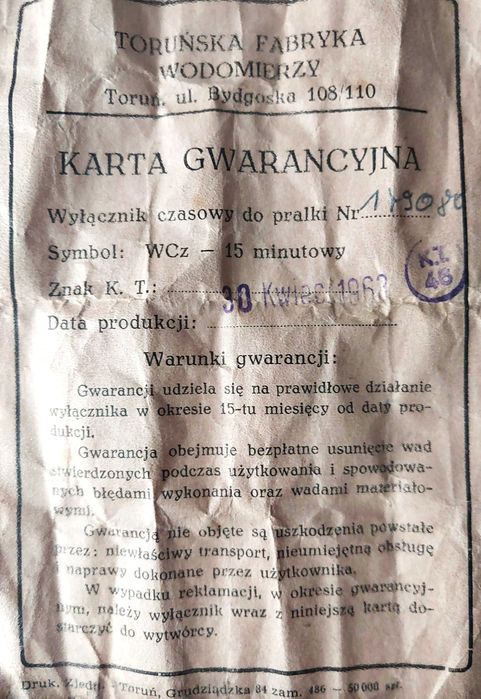 TORUŃSKA FABRYKA
WODOMIERZY
Toruń. ul. Bydgoska 108/110
KARTA GWARANCYJNA
Wyłącznik czasowy do pralki Nr 179080
Symbol: WCz — 15 minutowy
Znak K. T.:
K.T. 46
30 Kwiec. 1963
Data produkcji:
Warunki gwarancji:
Gwarancji udziela się na prawidłowe działanie
wyłącznika w okresie 15-tu miesięcy od daty pro-
dukcji.
Gwarancja obejmuje bezpłatne usunięcie wad
stwierdzonych podczas użytkowania i spowodowa-
nych błędami wykonania oraz wadami materiało-
wymi.
Gwarancją nie objęte są uszkodzenia powstałe
przez: niewłaściwy transport, nieumiejętną obsługę
i naprawy dokonane przez użytkownika.
W wypadku reklamacji, w okresie gwarancyj-
nym, należy wyłącznik wraz z niniejszą kartą do-
starczyć do wytwórcy.
Druk. Toruń, Grudziądzka 84 zam. 486 — 50 000 szt.